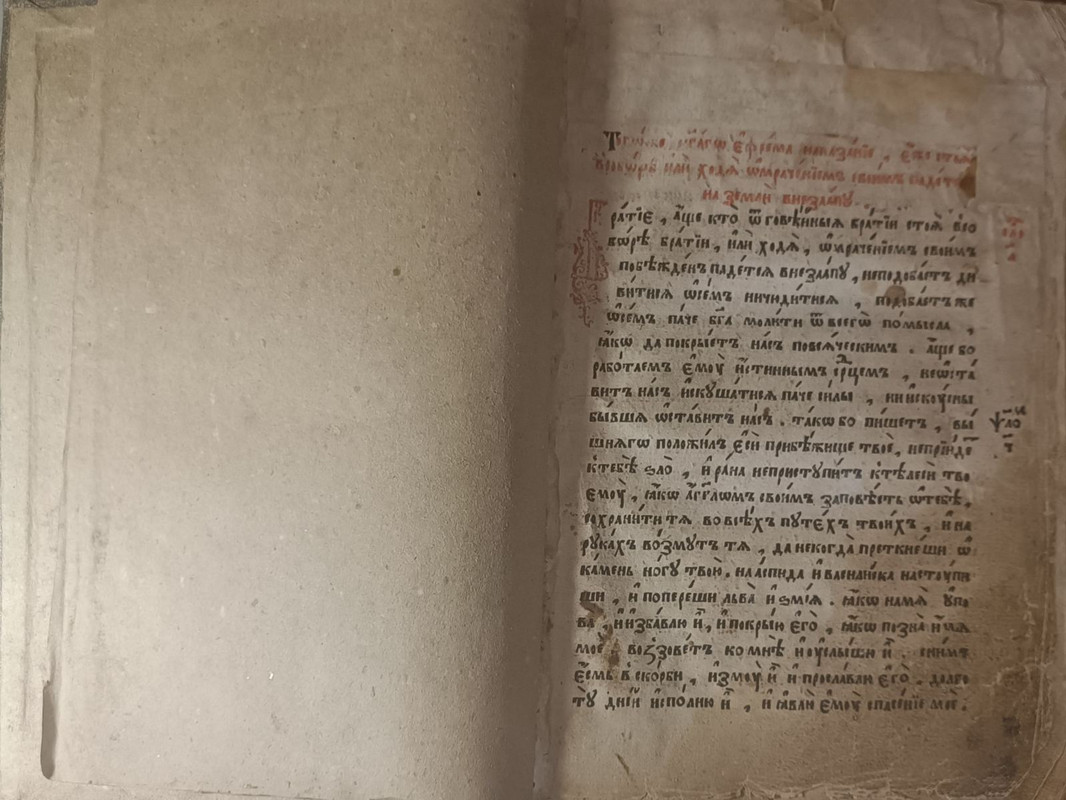 Тогѡ́же ст҃а́гѡ є҆фре́ма наказа́нїе , є҆́же стоѧ̀
в̾собо́рѣ и҆лѝ ходѧ̀ ѡ҆мраче́нїемъ свои́мъ паде́тсѧ
на́ землю внеза́пꙋ .
Бра́тїє , а҆́ще кто̀ ѿ говѣ́йныѧ бра́тїи стоѧ̀ в̾со
бо́рѣ бра́тїи , и҆лѝ ходѧ̀ , ѡ҆мраче́нїемъ свои́мъ
побѣжде́нъ паде́тсѧ внеза́пꙋ , неподоба́етъ ди
ви́тисѧ ѡ҆се́мъ ничиди́тисѧ , подоба́етъ же
ѡ҆се́мъ па́че бг҃а моли́ти ѿ всегѡ̀ по́мысла ,
ꙗ҆́кѡ да покры́етъ на́съ повсѧ́ческимъ . а҆́ще бо
рабо́таемъ є҆моу̀ и҆́стиннымъ ср҃цемъ , неѡ҆ста́
витъ на́съ и҆скꙋша́тисѧ па́че си́лы , ни и҆скоу́сны
бы́вшѧ ѡ҆ста́витъ на́съ . та́кѡ бо пи́шетъ , вы́
шнѧгѡ положи́лъ є҆сѝ прибѣ́жище твоѐ , непрїи́де
к̾тебѣ̀ ѕло̀ , и҆ ра́на непристꙋ́питъ к̾тѣлесѝ тво
є҆моу̀ , ꙗ҆́кѡ а҆́гг҃лѡмъ свои́мъ заповѣ́сть ѡ҆тебѣ̀ ,
сохрани́ти тѧ во всѣ́хъ пꙋте́хъ твои́хъ , и҆ на
рꙋка́хъ во́змꙋтъ тѧ , да некогда̀ преткне́ши ѡ҆
ка́мень но́гꙋ твою̀ . на а҆́спида и҆ васили́ска настоу́пи
ши , и҆ попере́ши льва̀ и҆ ѕмі́ѧ . ꙗ҆́кѡ на мѧ̀ ᲂу҆по
ва̀ , и҆ и҆зба́влю и҆̀ , и҆ покры́ю є҆го̀ , ꙗ҆́кѡ позна̀ и҆́мѧ
моѐ , воззове́тъ ко мнѣ̀ и҆ оу҆слы́шꙋ и҆̀ . сни́мъ
є҆́смь в̾ ско́рби , и҆змоу̀ и҆̀ и҆ просла́влю є҆го̀ . долго
тꙋ̀ дні́й и҆спо́лню и҆̀ , и҆ ꙗ҆влю̀ є҆моу̀ спасе́нїе моѐ .
ѱало
ч҃